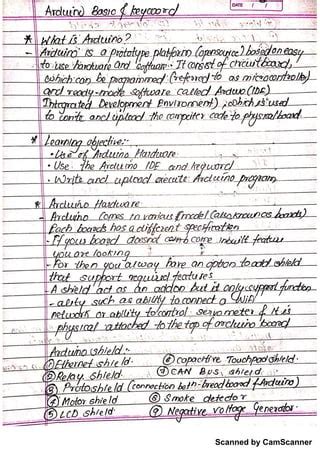 Arduino Basic & keyword
DATE / /
* What is Arduino?
- Arduino is a prototype platform (opensource) based on easy
to use hardware and software. It consist of circuit board,
which can be programmed (referred to as microcontroller)
and ready-made software called Arduino (IDE)
Integrated Development Environment), which is used
to write and upload the computer code to physical board.
* Learning objective:-
• Use of Arduino Hardware
• Use the Arduino IDE and keyword
• Write and upload execute Arduino program
* Arduino Hardware
- Arduino comes in various model (also known as boards)
Each boards has a different specification
- If your board doesnd come inbuilt feature
you are looking
- For then you alway have an option to add shield
that support required features
A shield act as an addon but it only support function
- ality such as ability to connect a wifi
network or ability to control servo meter & it is
physical attached to the top of arduino board
Arduino shield:-
① Ethernet shield ⑥ capacitive Touchpad shield.
② Relay shield ⑦ CAN BUS shield
③ Proto shield (connection beth- bread board & Arduino)
④ Motor shield ⑧ Smoke detector
⑤ LCD shield ⑨ Negative voltage Generator.
Scanned by CamScanner